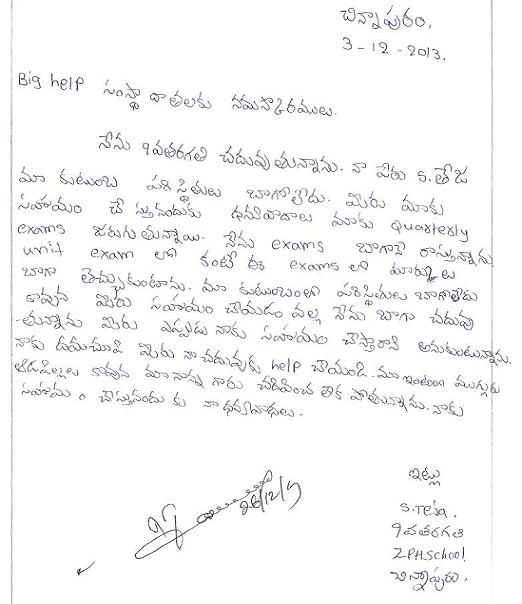 చిన్నాపురం,
3-12-2013.
Big help సంస్థా దాతలకు నమస్కారములు.
నేను 9వతరగతి చదువుతున్నాను. నా పేరు S.తేజ
మా కుటుంబ పరిస్థితులు బాగోలేదు. మీరు మాకు
సహాయం చేస్తునందుకు ధన్యవాదాలు మాకు quarterly
exams జరుగుతున్నాయి. నేను exams బాగానే రాస్తున్నాను
unit exam లా కంటే ఈ exams లా మార్కులు
బాగా తెచ్చుకుంటాను. మా కుటుంబంలా పరిస్థితులు బాగాలేదు
కావున మీరు సహాయం చేయడం వల్ల నేను బాగా చదువు
-తున్నాను మీరు ఎప్పుడు నాకు సహాయం చేస్తారాని అనుకుంటున్నాను.
నాకు దయచూపి మీరు నా చదువుకు help చేయండి. మా ఇంటిలా ముగ్గురు
ఆడపిల్లలు కావున మా నాన్న గారు చదివించ లేక పోతున్నాను. నాకు
సహాయం చేస్తునందుకు నా ధన్యవాధలు.
ఇట్లు
S.Teja.
9వతరగతి
ZPHSchool
చిన్నాపురం,